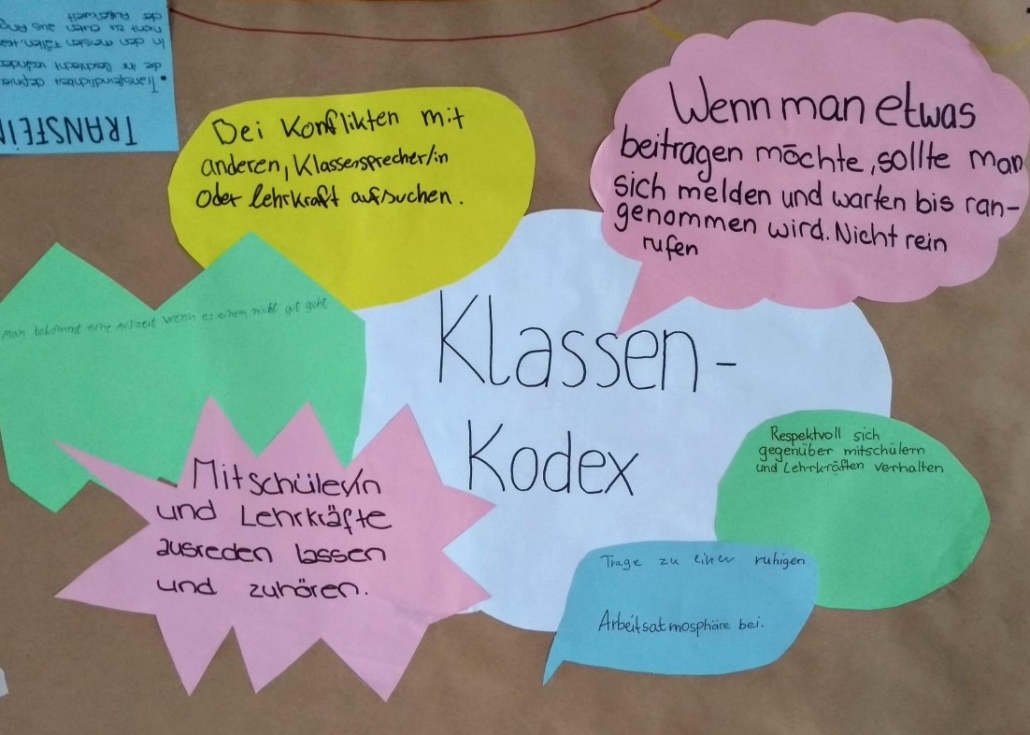 TRANSFEI
Transfeindlichkeit
die ihr Geschlecht
in den meisten Fällen
nicht zu
der Außenwelt
Bei Konflikten mit
anderen, Klassensprecher/in
Oder lehrkraft aufsuchen.
Wenn man etwas
beitragen möchte, sollte man
sich melden und warten bis ran-
genommen wird. Nicht rein
rufen
Man bekommt eine Auszeit wenn es einem nicht gut geht
Klassen-
Kodex
Respektvoll sich
gegenüber mitschülern
und Lehrkräften verhalten
Mitschüler/in
und Lehrkräfte
ausreden lassen
und zuhören.
Trage zu einer ruhigen
Arbeitsatmosphäre bei.